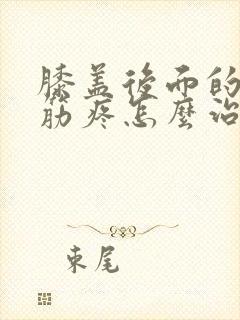 膝盖後面的
筋疼怎麼治
束尾